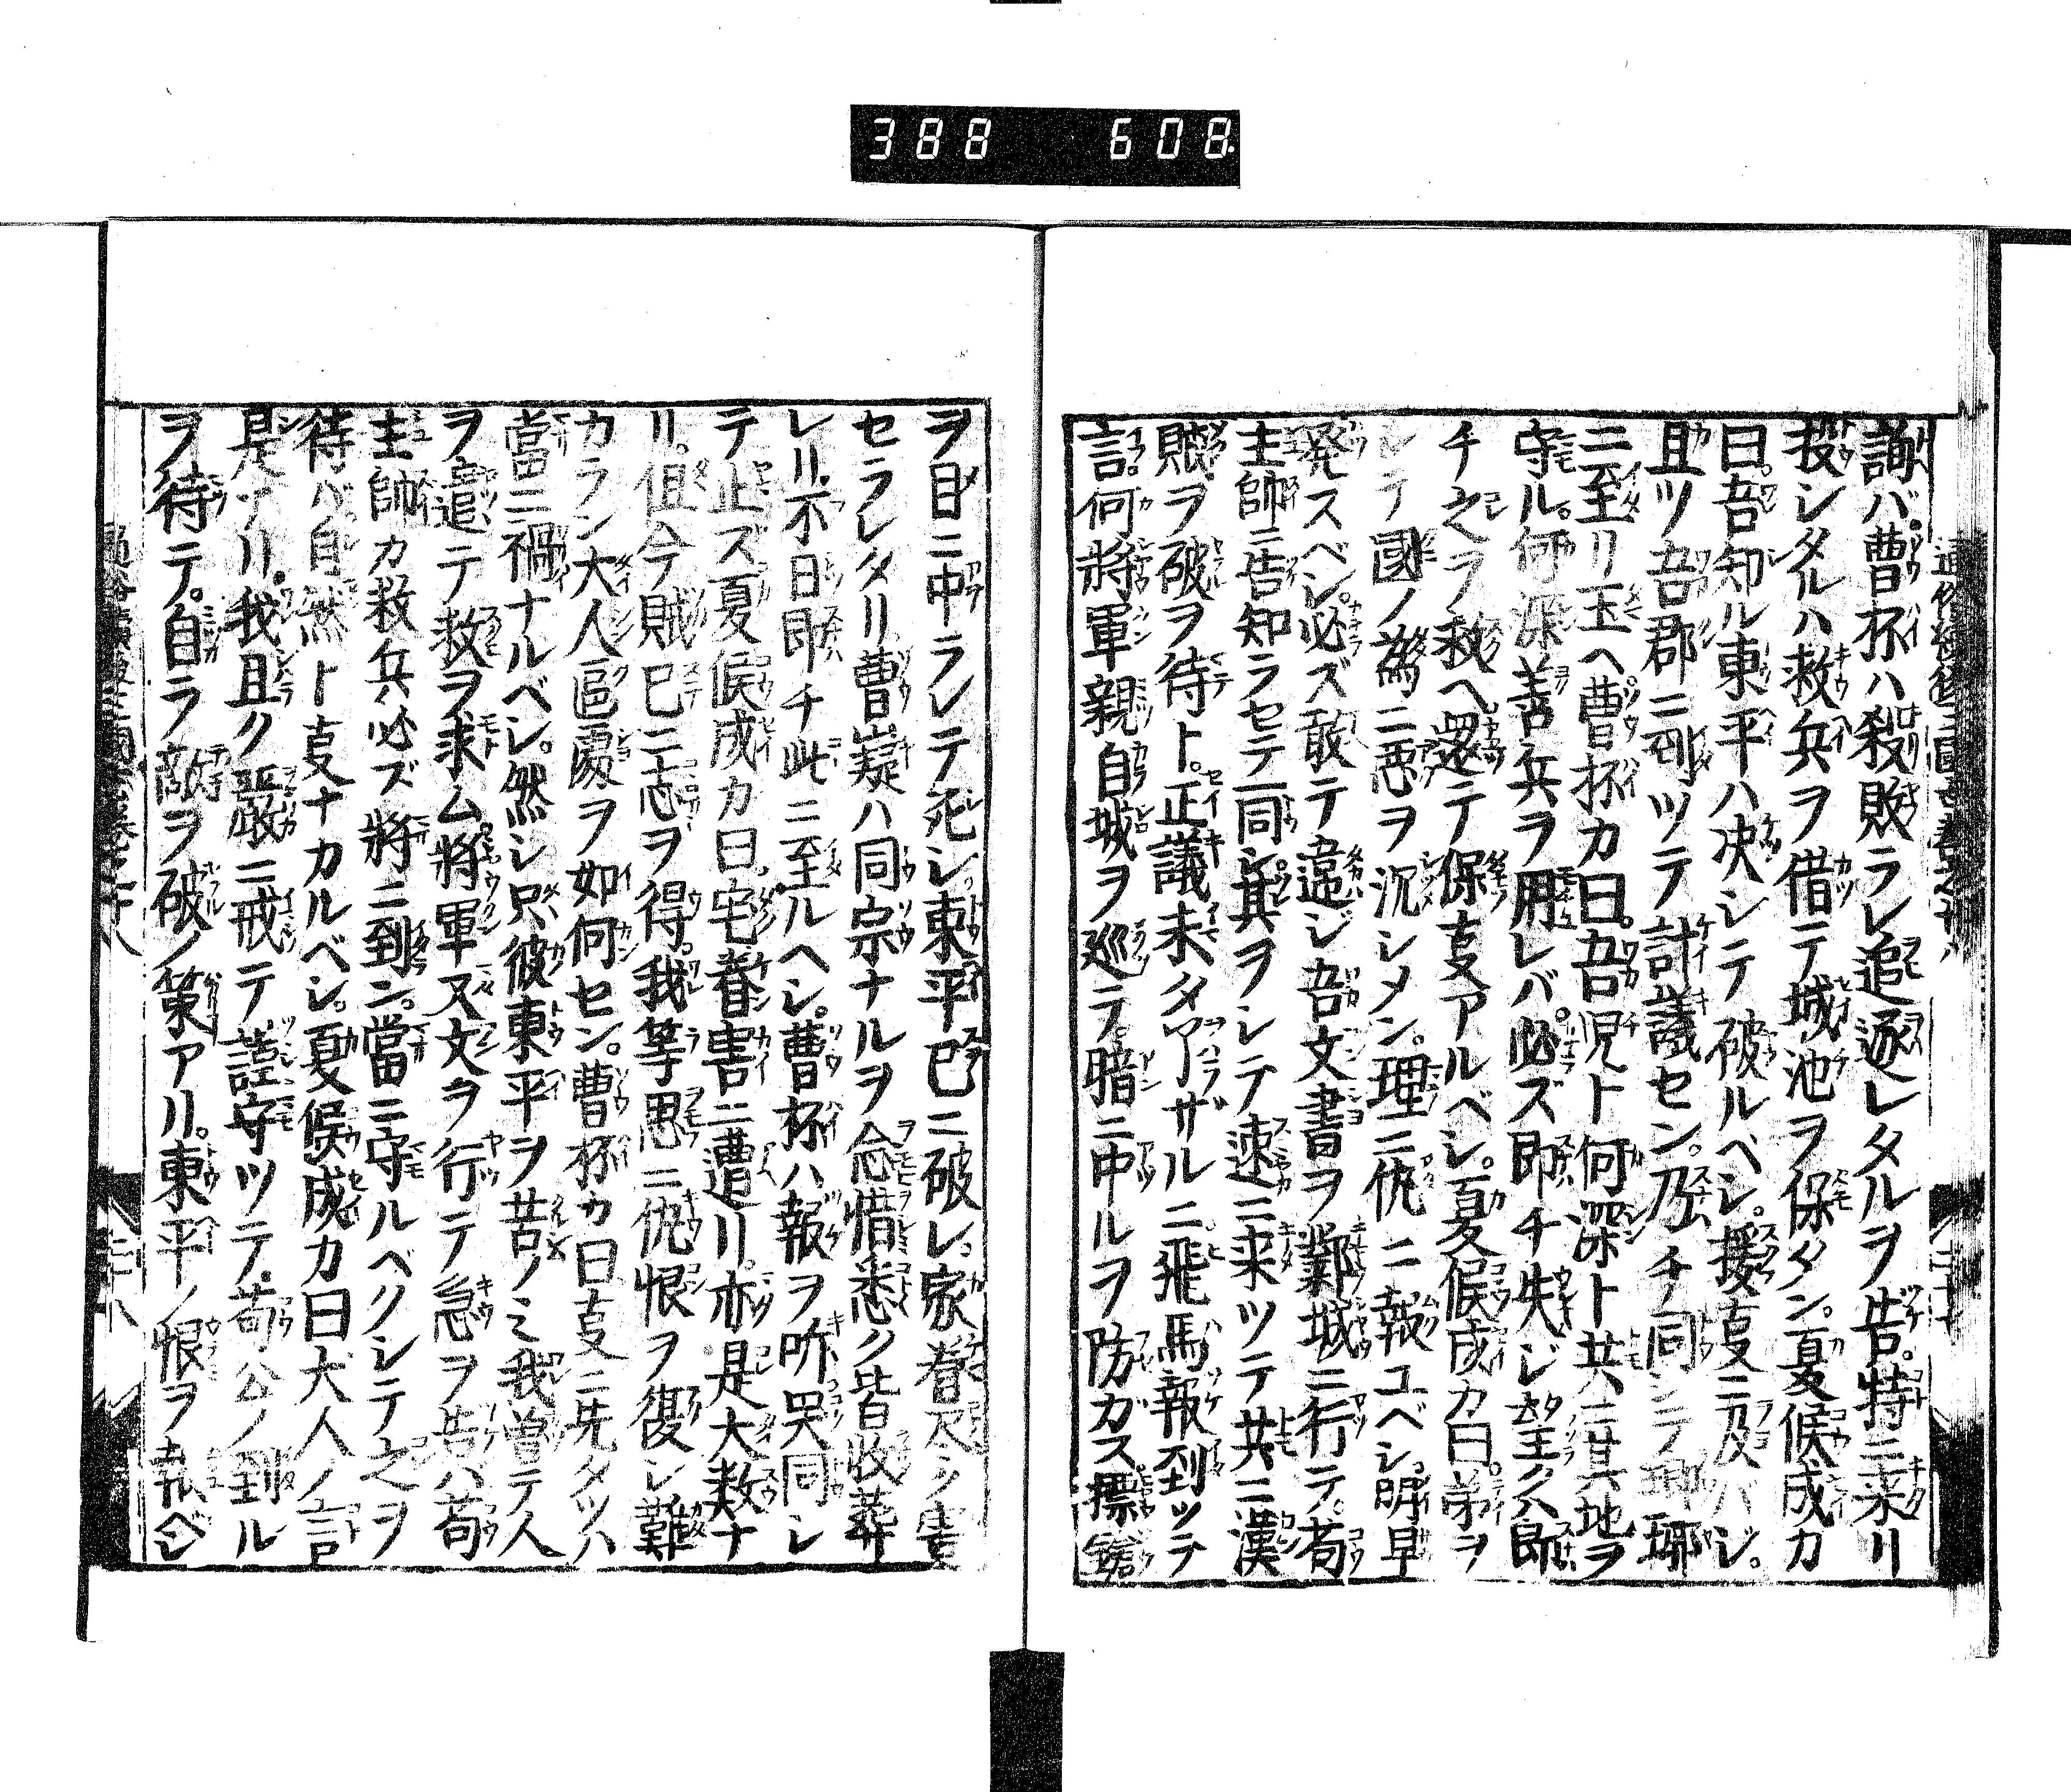 388 608.
詢バ。曹抔ハ殺敗ラレ追逐レタルヲ告。特ニ来リ
投シタルハ救兵ヲ借テ城池ヲ保タン。夏候成カ
曰。吾知ル東平ハ决シテ破ルベシ。援支ニ及バジ。
且ツ吾郡ニ到ツテ計議セン。乃チ同シテ瑯琊
ニ至リ玉ヘ曹抔カ曰。吾児ト何深ト共ニ其地ヲ
守ル。何深善兵ヲ用レバ。必ズ即チ失ジ望クハ即
チ之ヲ救ヘ。還テ保支アルベシ。夏候成カ曰。弟ヲ
シテ國ノ為ニ悪ヲ沉シメン。理ニ仇ニ報ユベシ。明早
発スベシ。必ズ敢テ違ジ吾文書ヲ鄴城ニ行テ。苟
主帥ニ告知ラセテ一同シ。其ヲシテ速ニ来ツテ共ニ漢
賊ヲ破ヲ待ト。正議未タ了ザルニ飛馬報到ッテ
言。何將軍親自城ヲ巡テ。暗ニ中ルヲ防ガス摽鎗
ヲ目ニ中ラレテ死シ東平已ニ破レ。家眷尽ク害
セラレタリ曹嶷ハ同宗ナルヲ念惜悉ク皆收葬
レリ。不日即チ此ニ至ルヘシ。曹抔ハ報ヲ听哭同シ
テ止ズ夏候成カ曰。宅眷害ニ遭リ。亦是大数ナ
リ。但今賊已ニ志ヲ得。我等思ニ仇恨ヲ復シ難
カラン大人區處ヲ如何セン。曹抔カ曰支ニ先タツハ
當ニ禍ナルベシ。然シ只彼東平ヲ苦ノミ我曽テ人
ヲ遣テ救ヲ求ム。將軍又文ヲ行テ急ヲ告ハ苟
主帥カ救兵必ズ將ニ到ン。當ニ守ルベクシテ之ヲ
待バ自然ト支ナカルベシ。夏候成カ曰大人ノ言
是ナリ。我且ク嚴ニ戒テ。謹守ツテ。苟公ノ到ル
ヲ待テ。自ラ敵ヲ破ノ策アリ。東平ノ恨ヲ報ヘシ